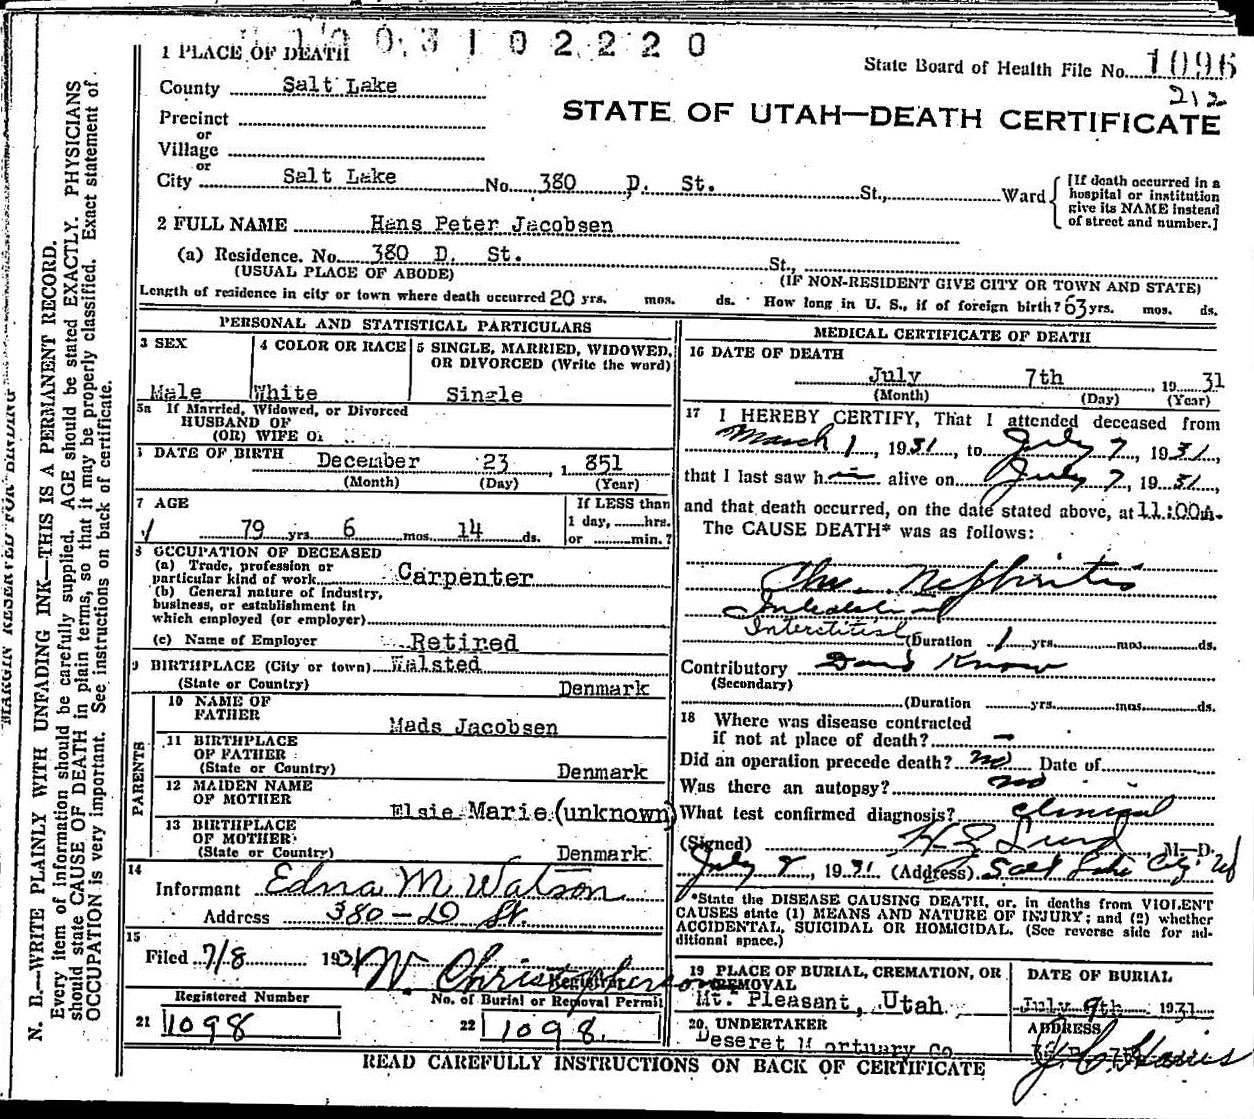 0 3 1 0 2 2 2 0
1 PLACE OF DEATH
State Board of Health File No. 1096
212
County Salt Lake
STATE OF UTAH—DEATH CERTIFICATE
Precinct
or
Village
or
City Salt Lake No. 380 D. St. St., Ward
[If death occurred in a hospital or institution give its NAME instead of street and number.]
2 FULL NAME Hans Peter Jacobsen
(a) Residence. No. 380 D. St. St.,
(USUAL PLACE OF ABODE) (IF NON-RESIDENT GIVE CITY OR TOWN AND STATE)
Length of residence in city or town where death occurred 20 yrs. mos. ds. How long in U. S., if of foreign birth? 63 yrs. mos. ds.
PERSONAL AND STATISTICAL PARTICULARS
3 SEX
Male
4 COLOR OR RACE
White
5 SINGLE, MARRIED, WIDOWED, OR DIVORCED (Write the word)
Single
5a If Married, Widowed, or Divorced
HUSBAND OF
(OR) WIFE OF
6 DATE OF BIRTH December 23, 1851
(Month) (Day) (Year)
7 AGE
79 yrs. 6 mos. 14 ds.
If LESS than
1 day, hrs.
or min.?
8 OCCUPATION OF DECEASED
(a) Trade, profession or
particular kind of work Carpenter
(b) General nature of industry,
business, or establishment in
which employed (or employer)
(c) Name of Employer Retired
9 BIRTHPLACE (City or town) Walsted
(State or Country) Denmark
PARENTS
10 NAME OF
FATHER Mads Jacobsen
11 BIRTHPLACE
OF FATHER
(State or Country) Denmark
12 MAIDEN NAME
OF MOTHER Elsie Marie (unknown)
13 BIRTHPLACE
OF MOTHER
(State or Country) Denmark
14
Informant Edna M. Watson
Address 380-D St.
15
Filed 7/8 1931 W. Christopherson
Registrar
Registered Number
21 1098
No. of Burial or Removal Permit
22 1098
MEDICAL CERTIFICATE OF DEATH
16 DATE OF DEATH
July 7th, 1931
(Month) (Day) (Year)
17 I HEREBY CERTIFY, That I attended deceased from
March 1, 1931, to July 7, 1931,
that I last saw h alive on July 7, 1931,
and that death occurred, on the date stated above, at 11:00A.
The CAUSE DEATH* was as follows:
Chr. Nephritis
Interstitial
Interstitial (Duration 1 yrs. mos. ds.
Contributory Dont Know
(Secondary)
(Duration yrs. mos. ds.
18 Where was disease contracted
if not at place of death? —
Did an operation precede death? no Date of
Was there an autopsy? no
What test confirmed diagnosis? clinical
(Signed) H Z Lund M. D.
July 7, 1931 (Address) Salt Lake City Ut
*State the DISEASE CAUSING DEATH, or, in deaths from VIOLENT
CAUSES state (1) MEANS AND NATURE OF INJURY; and (2) whether
ACCIDENTAL, SUICIDAL OR HOMICIDAL. (See reverse side for ad-
ditional space.)
19 PLACE OF BURIAL, CREMATION, OR
REMOVAL
Mt. Pleasant, Utah
DATE OF BURIAL
July 9th 1931
20 UNDERTAKER
Deseret Mortuary Co
ADDRESS
READ CAREFULLY INSTRUCTIONS ON BACK OF CERTIFICATE
MARGIN RESERVED FOR BINDING
N. B.—WRITE PLAINLY WITH UNFADING INK—THIS IS A PERMANENT RECORD.
Every item of information should be carefully supplied. AGE should be stated EXACTLY. PHYSICIANS
should state CAUSE OF DEATH in plain terms, so that it may be properly classified. Exact statement of
OCCUPATION is very important. See instructions on back of certificate.